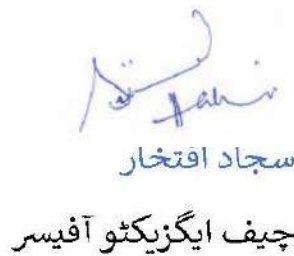 سجاد افتخار
چیف ایگزیکٹو آفیسر